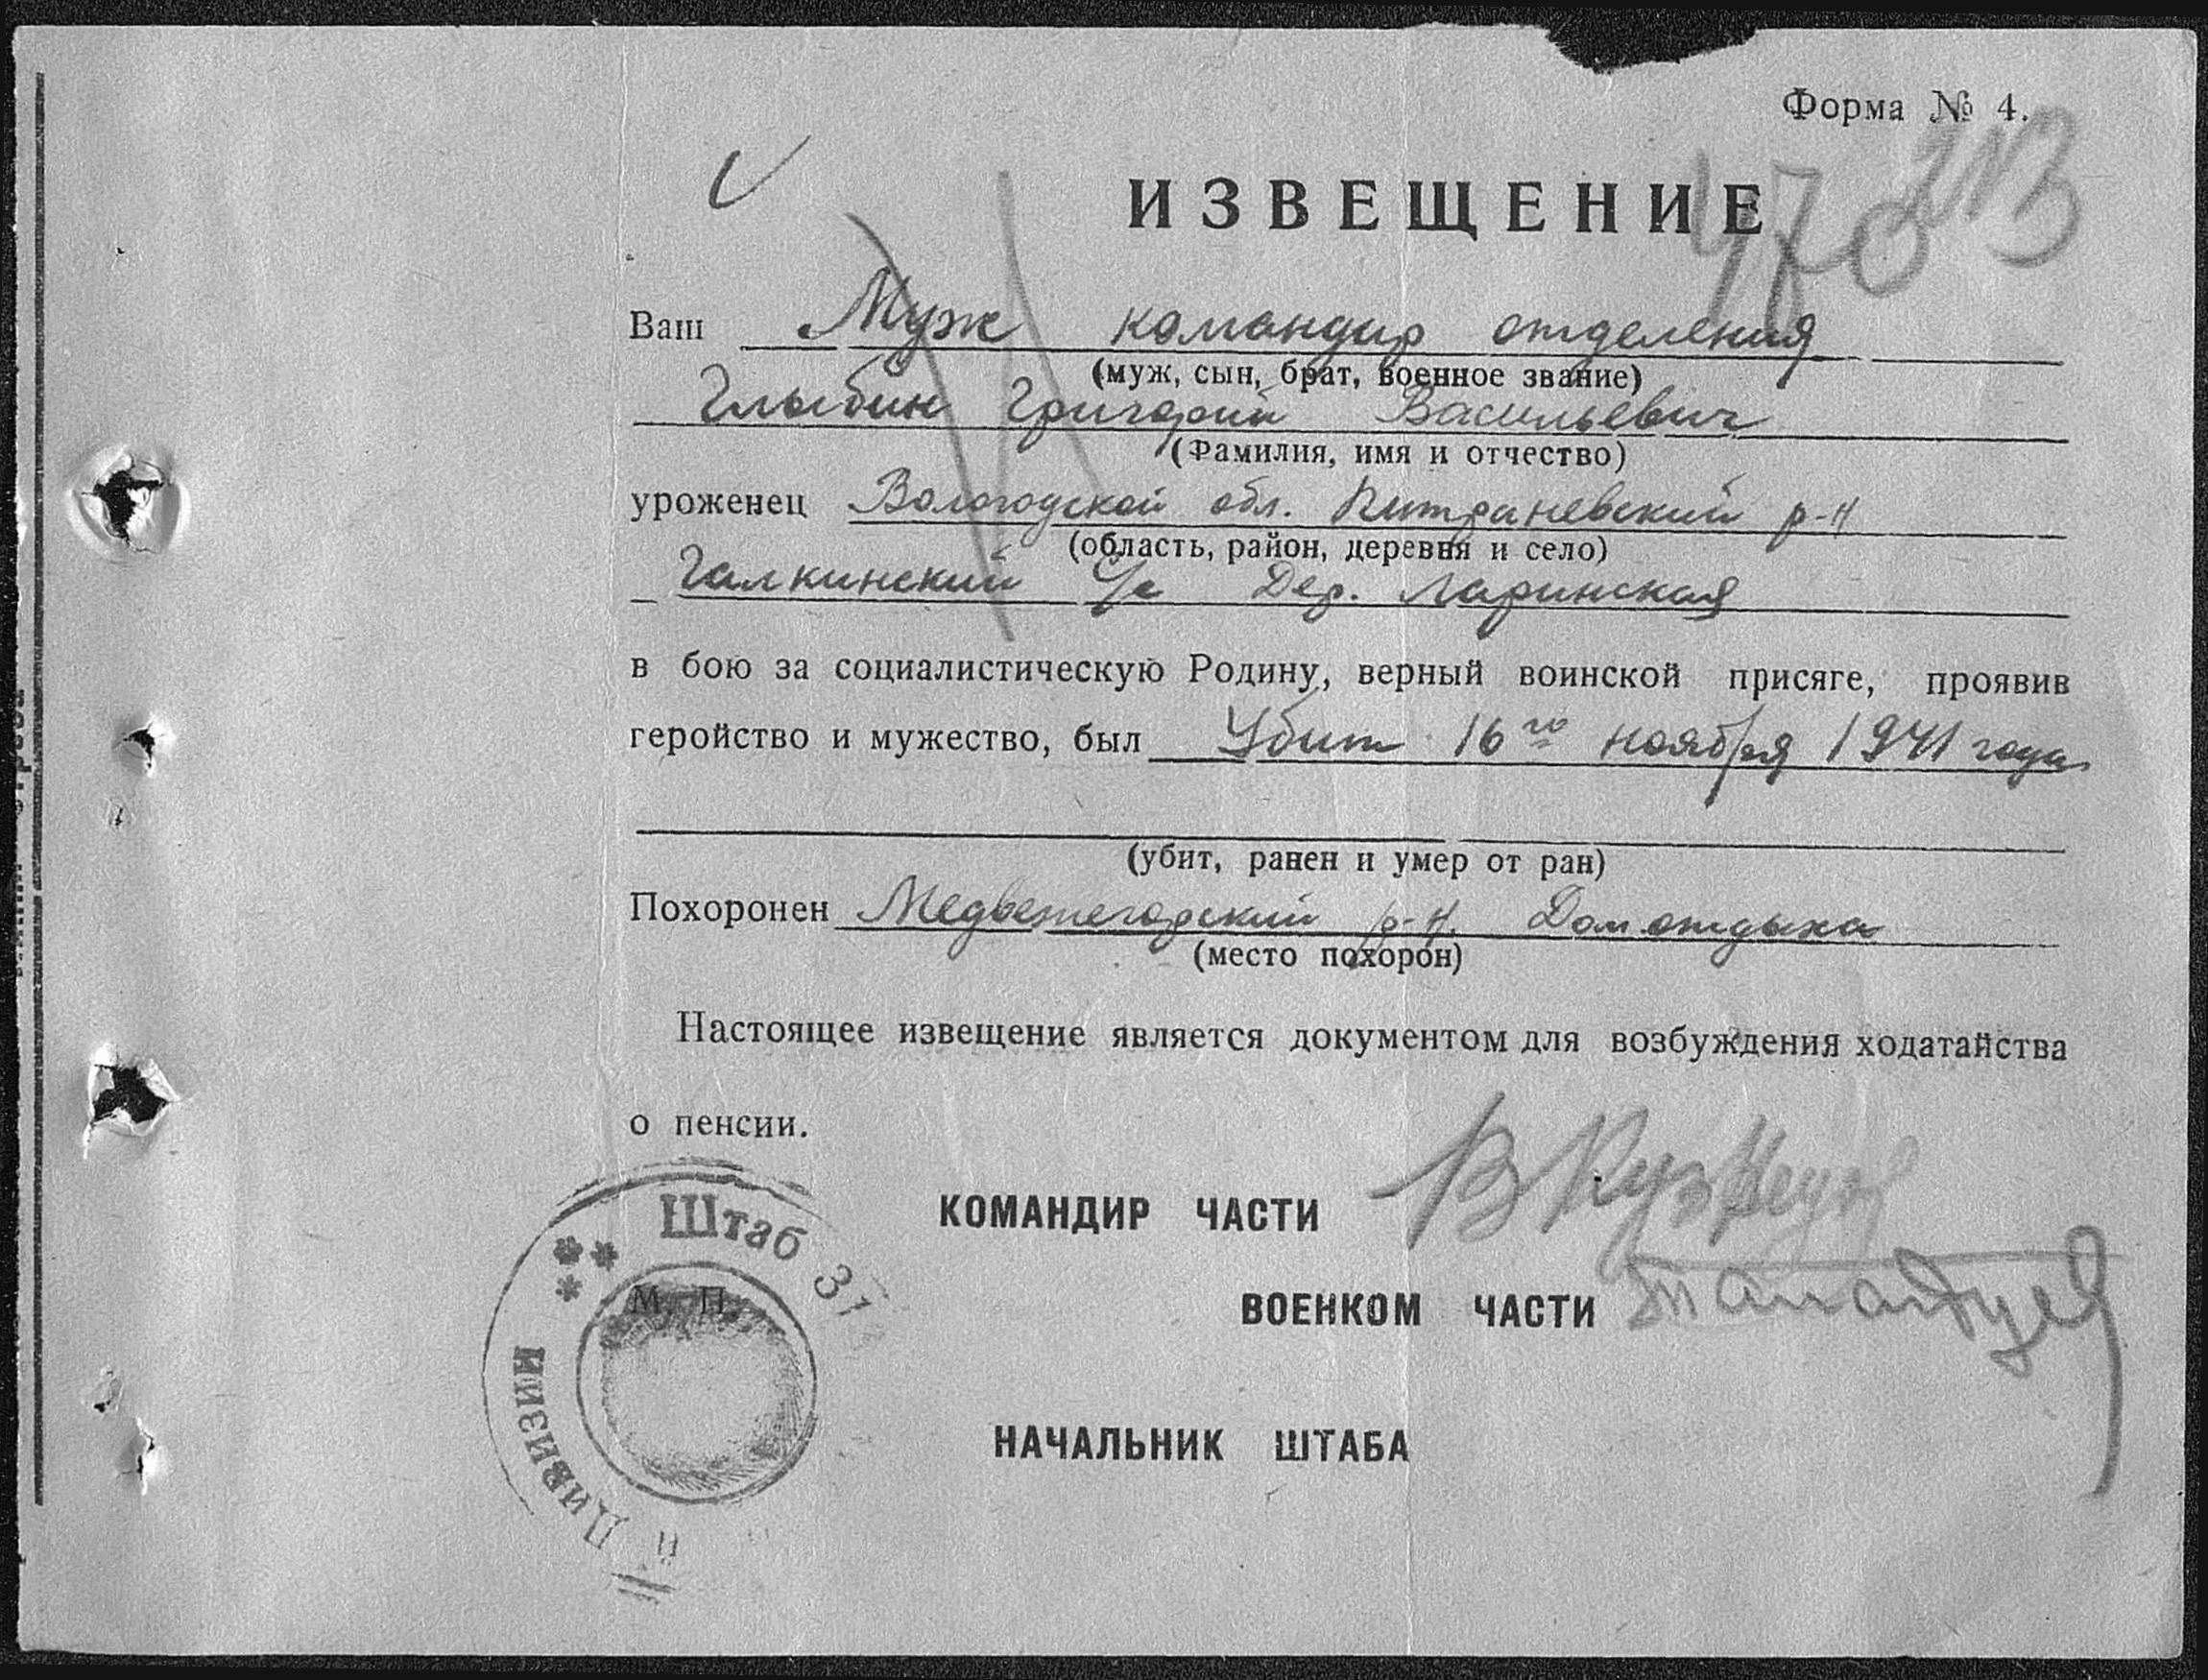 Форма № 4.
ИЗВЕЩЕНИЕ
Ваш Муж командир отделения
(муж, сын, брат, военное звание)
Глыбин Григорий Васильевич
(Фамилия, имя и отчество)
уроженец Вологодской обл. р-н
(область, район, деревня и село)
Галкинский с/с Дер. Ларинская
в бою за социалистическую Родину, верный воинской присяге, проявив
геройство и мужество, был Убит 16го ноября 1941 года
(убит, ранен и умер от ран)
Похоронен Медвежегорский р-н. Дом отдыха
(место похорон)
Настоящее извещение является документом для возбуждения ходатайства
о пенсии.
КОМАНДИР ЧАСТИ В Кузнецов
ВОЕНКОМ ЧАСТИ
НАЧАЛЬНИК ШТАБА
М. П.
Штаб 37
й Дивизии